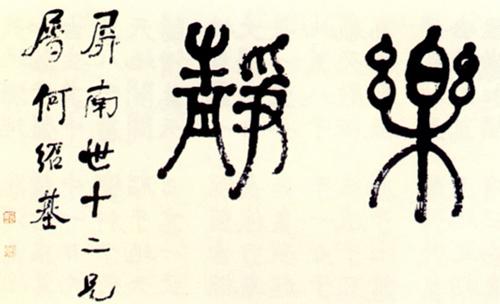 樂
靜
屏南世十二兄
屬何紹基